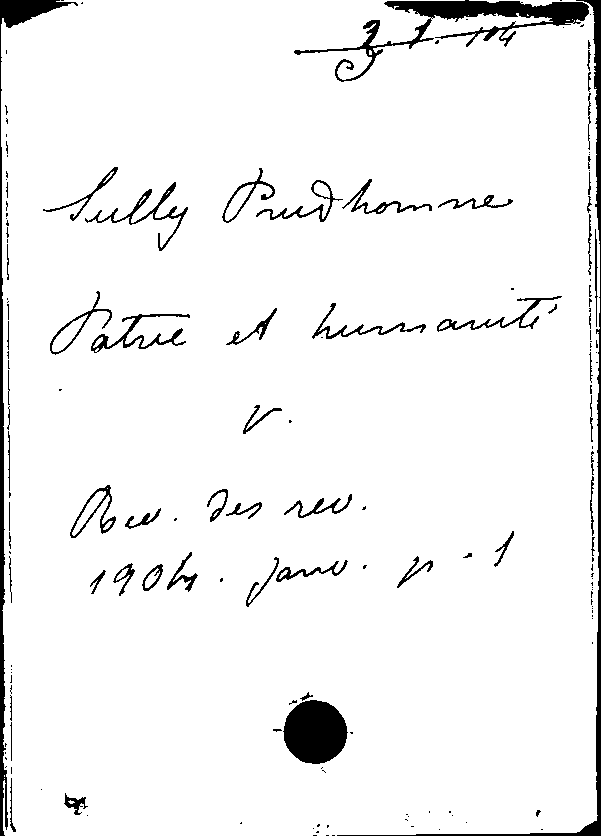 3. 1. 104
Sully Prudhomme
Patrie et humanité
v.
Rev. des rev.
1904. janv. p. 1